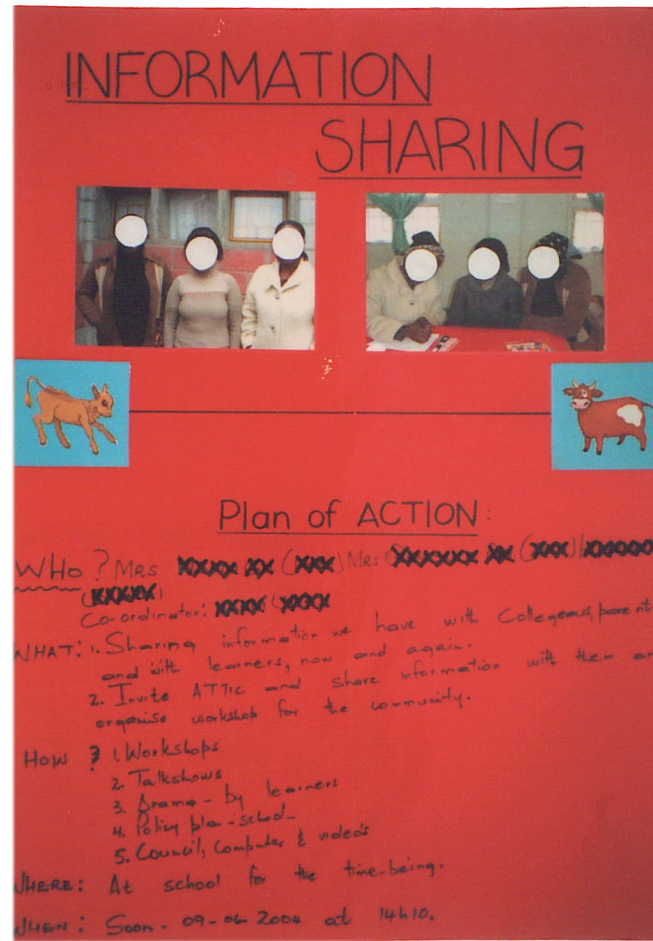 INFORMATION
SHARING
Plan of ACTION:
WHO? Mrs (    ) Mrs (    )
Co-ordinator:
WHAT: 1. Sharing information we have with Collegeaus, parent
and with learners, now and again.
2. Invite ATTIC and share information with them
organise workshop for the community.
HOW ? 1. Workshops
2. Talkshows
3. Drama - by learners
4. Policy plan - school -
5. Council, Computer & videos
WHERE: At school for the time-being.
WHEN: Soon - 09-06-2004 at 14h10.